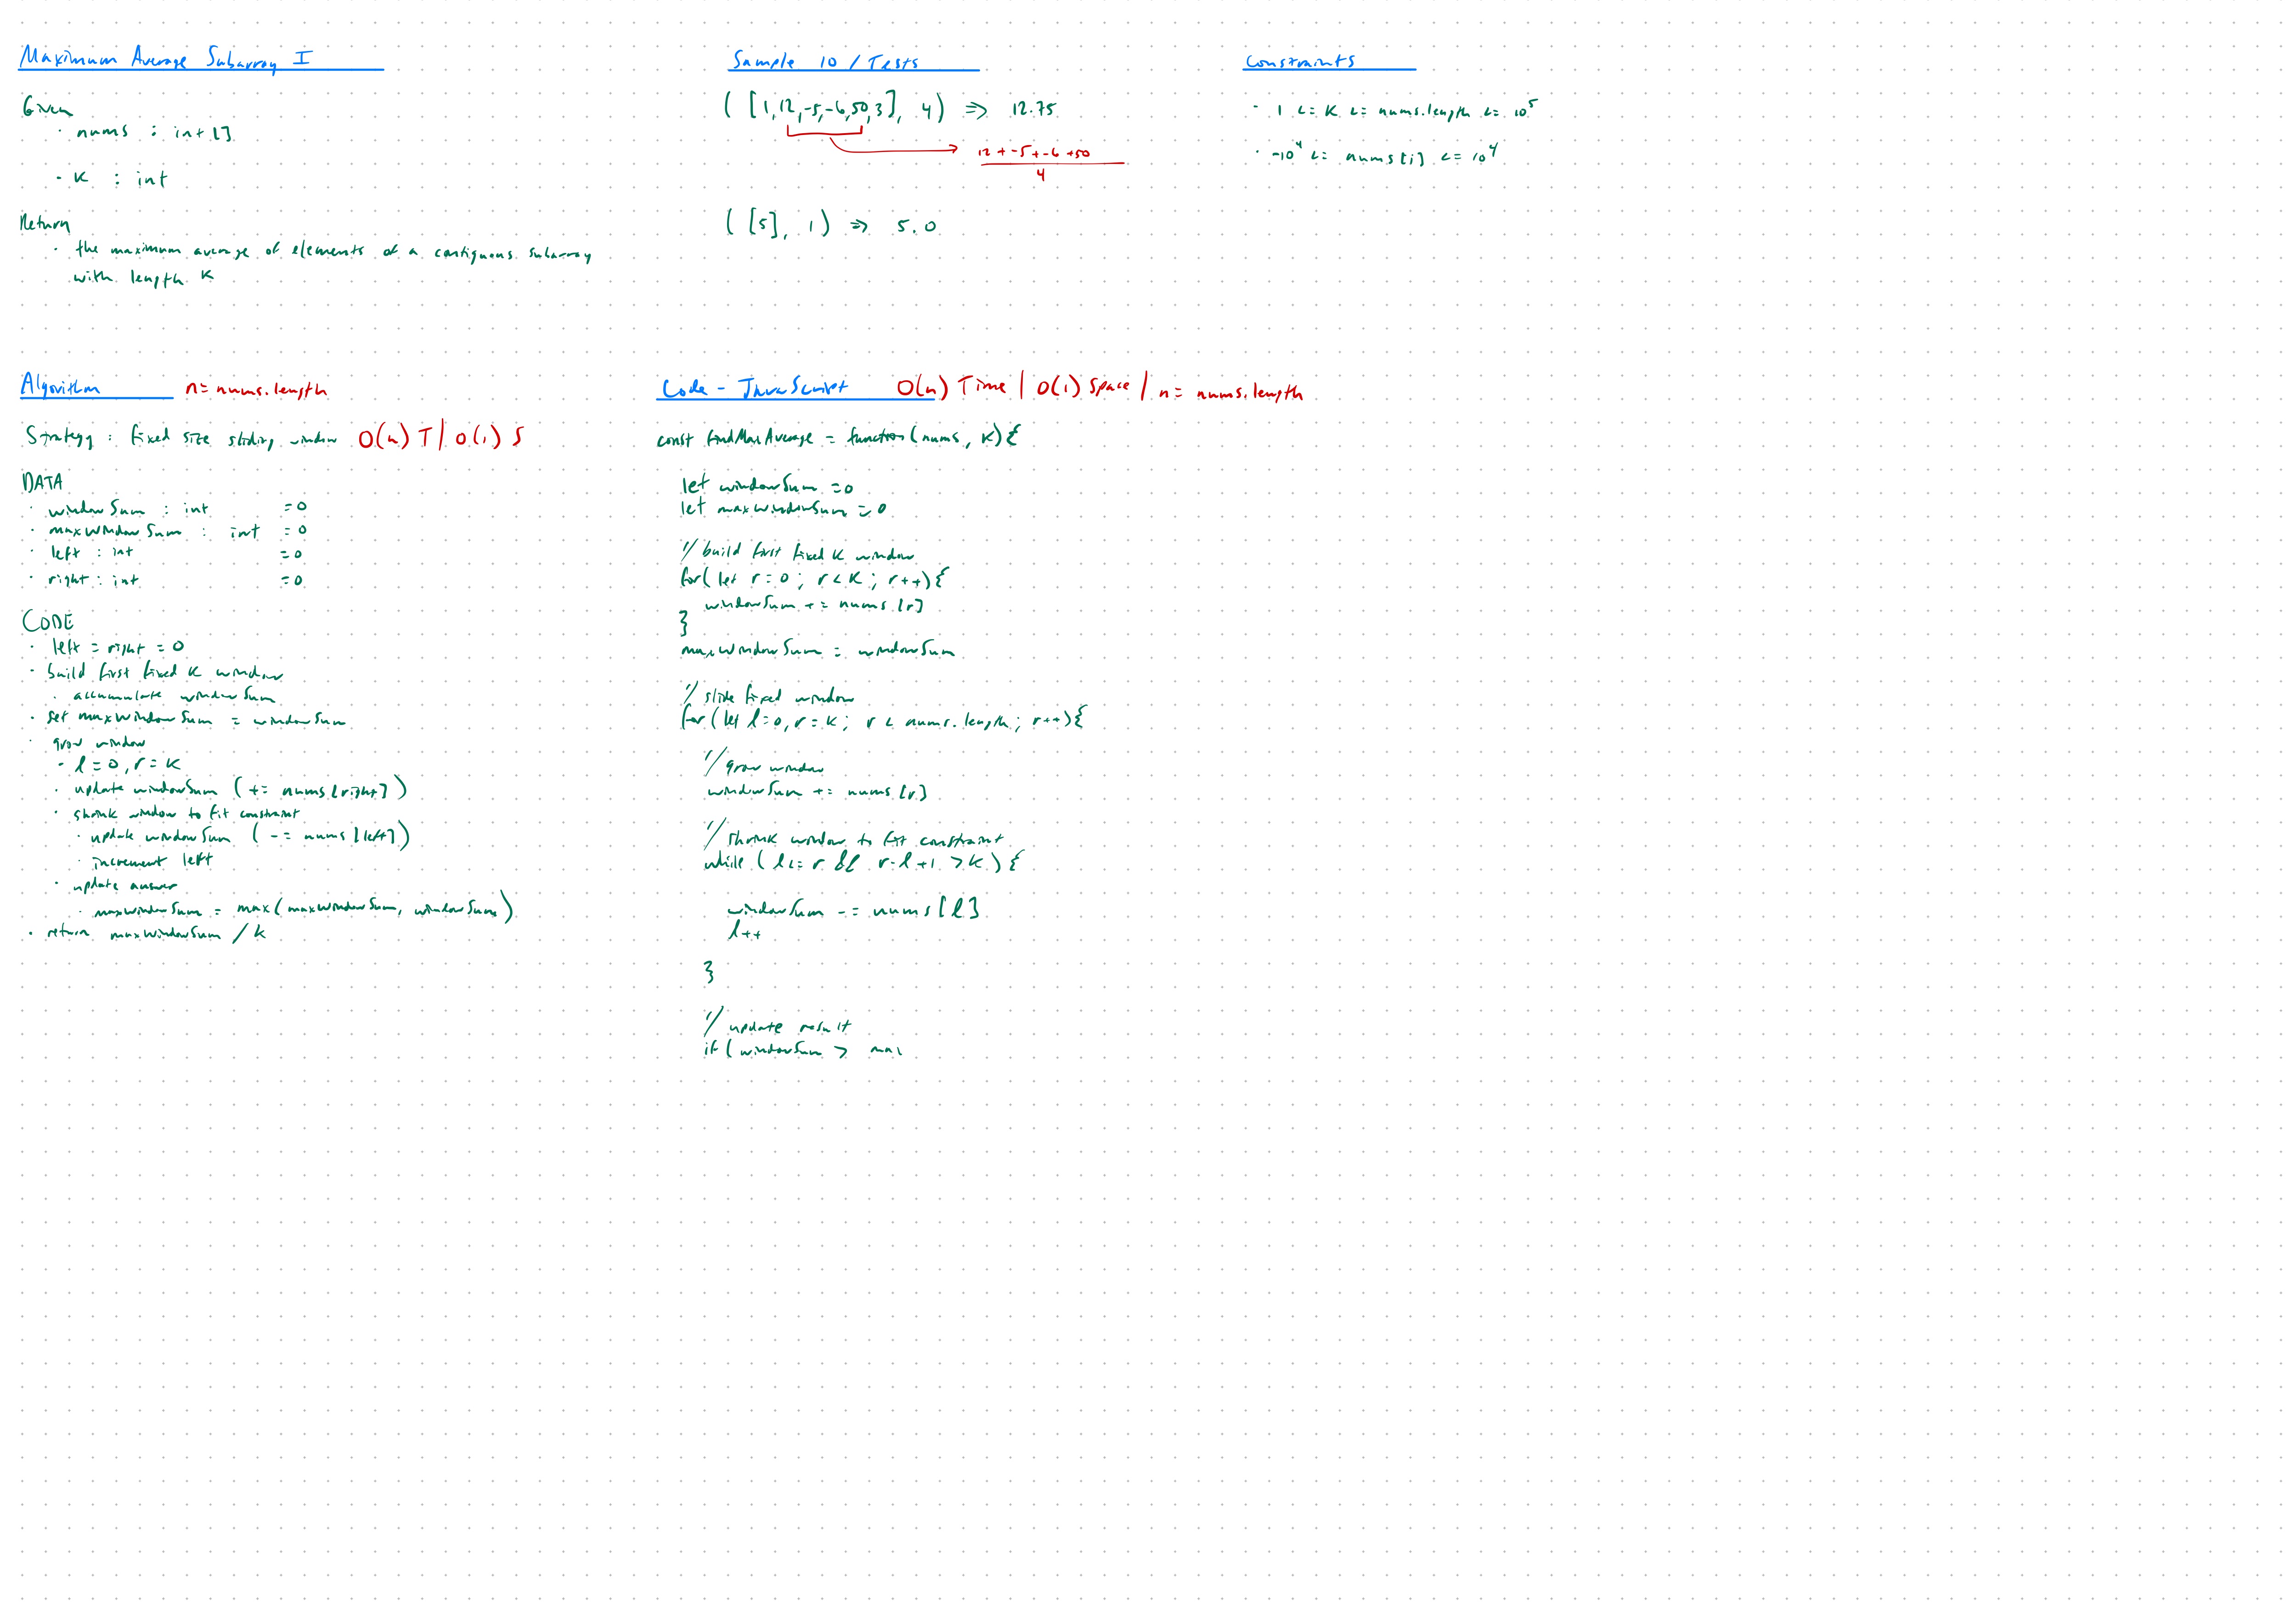 Maximum Average Subarray I
Given
· nums : int[]
· K : int
Return
· the maximum average of elements of a contiguous subarray
with length K
Sample IO / Tests
( [1,12,-5,-6,50,3], 4) => 12.75
12 + -5 + -6 + 50
4
( [5], 1) => 5.0
Constraints
· 1 <= K <= nums.length <= 10⁵
· -10⁴ <= nums[i] <= 10⁴
Algorithm n = nums.length
Strategy : fixed size sliding window O(n) T | O(1) S
DATA
· windowSum : int = 0
· maxWindowSum : int = 0
· left : int = 0
· right : int = 0
CODE
· left = right = 0
· build first fixed K window
· accumulate windowSum
· set maxWindowSum = windowSum
· grow window
· l = 0, r = K
· update windowSum ( += nums[right])
· shrink window to fit constraint
· update windowSum ( -= nums[left])
· increment left
· update answer
· maxWindowSum = max(maxWindowSum, windowSum)
· return maxWindowSum / K
Code - JavaScript O(n) Time | O(1) Space | n = nums.length
const findMaxAverage = function(nums, K){
let windowSum = 0
let maxWindowSum = 0
// build first fixed K window
for(let r = 0; r < K; r++){
windowSum += nums[r]
}
maxWindowSum = windowSum
// slide fixed window
for(let l = 0, r = K; r < nums.length; r++){
// grow window
windowSum += nums[r]
// shrink window to fit constraint
while (l <= r && r - l + 1 > K) {
windowSum -= nums[l]
l++
}
// update result
if (windowSum > max